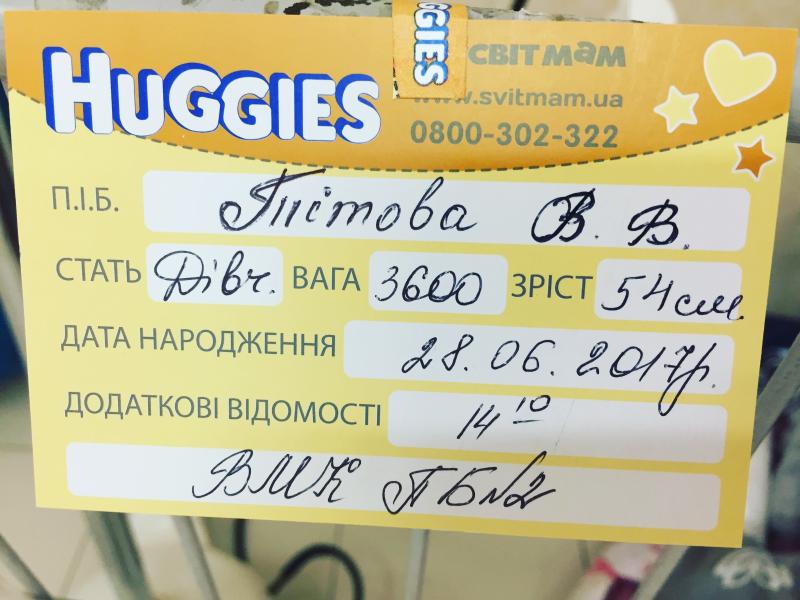 HUGGIES
GGIES
СВІТ МАМ
www.svitmam.ua
0800-302-322
П.І.Б. Пістова В. В.
СТАТЬ Дівч. ВАГА 3600 ЗРІСТ 54 см.
ДАТА НАРОДЖЕННЯ 28.06.2017р.
ДОДАТКОВІ ВІДОМОСТІ 14 10
ВМК ПБ №2